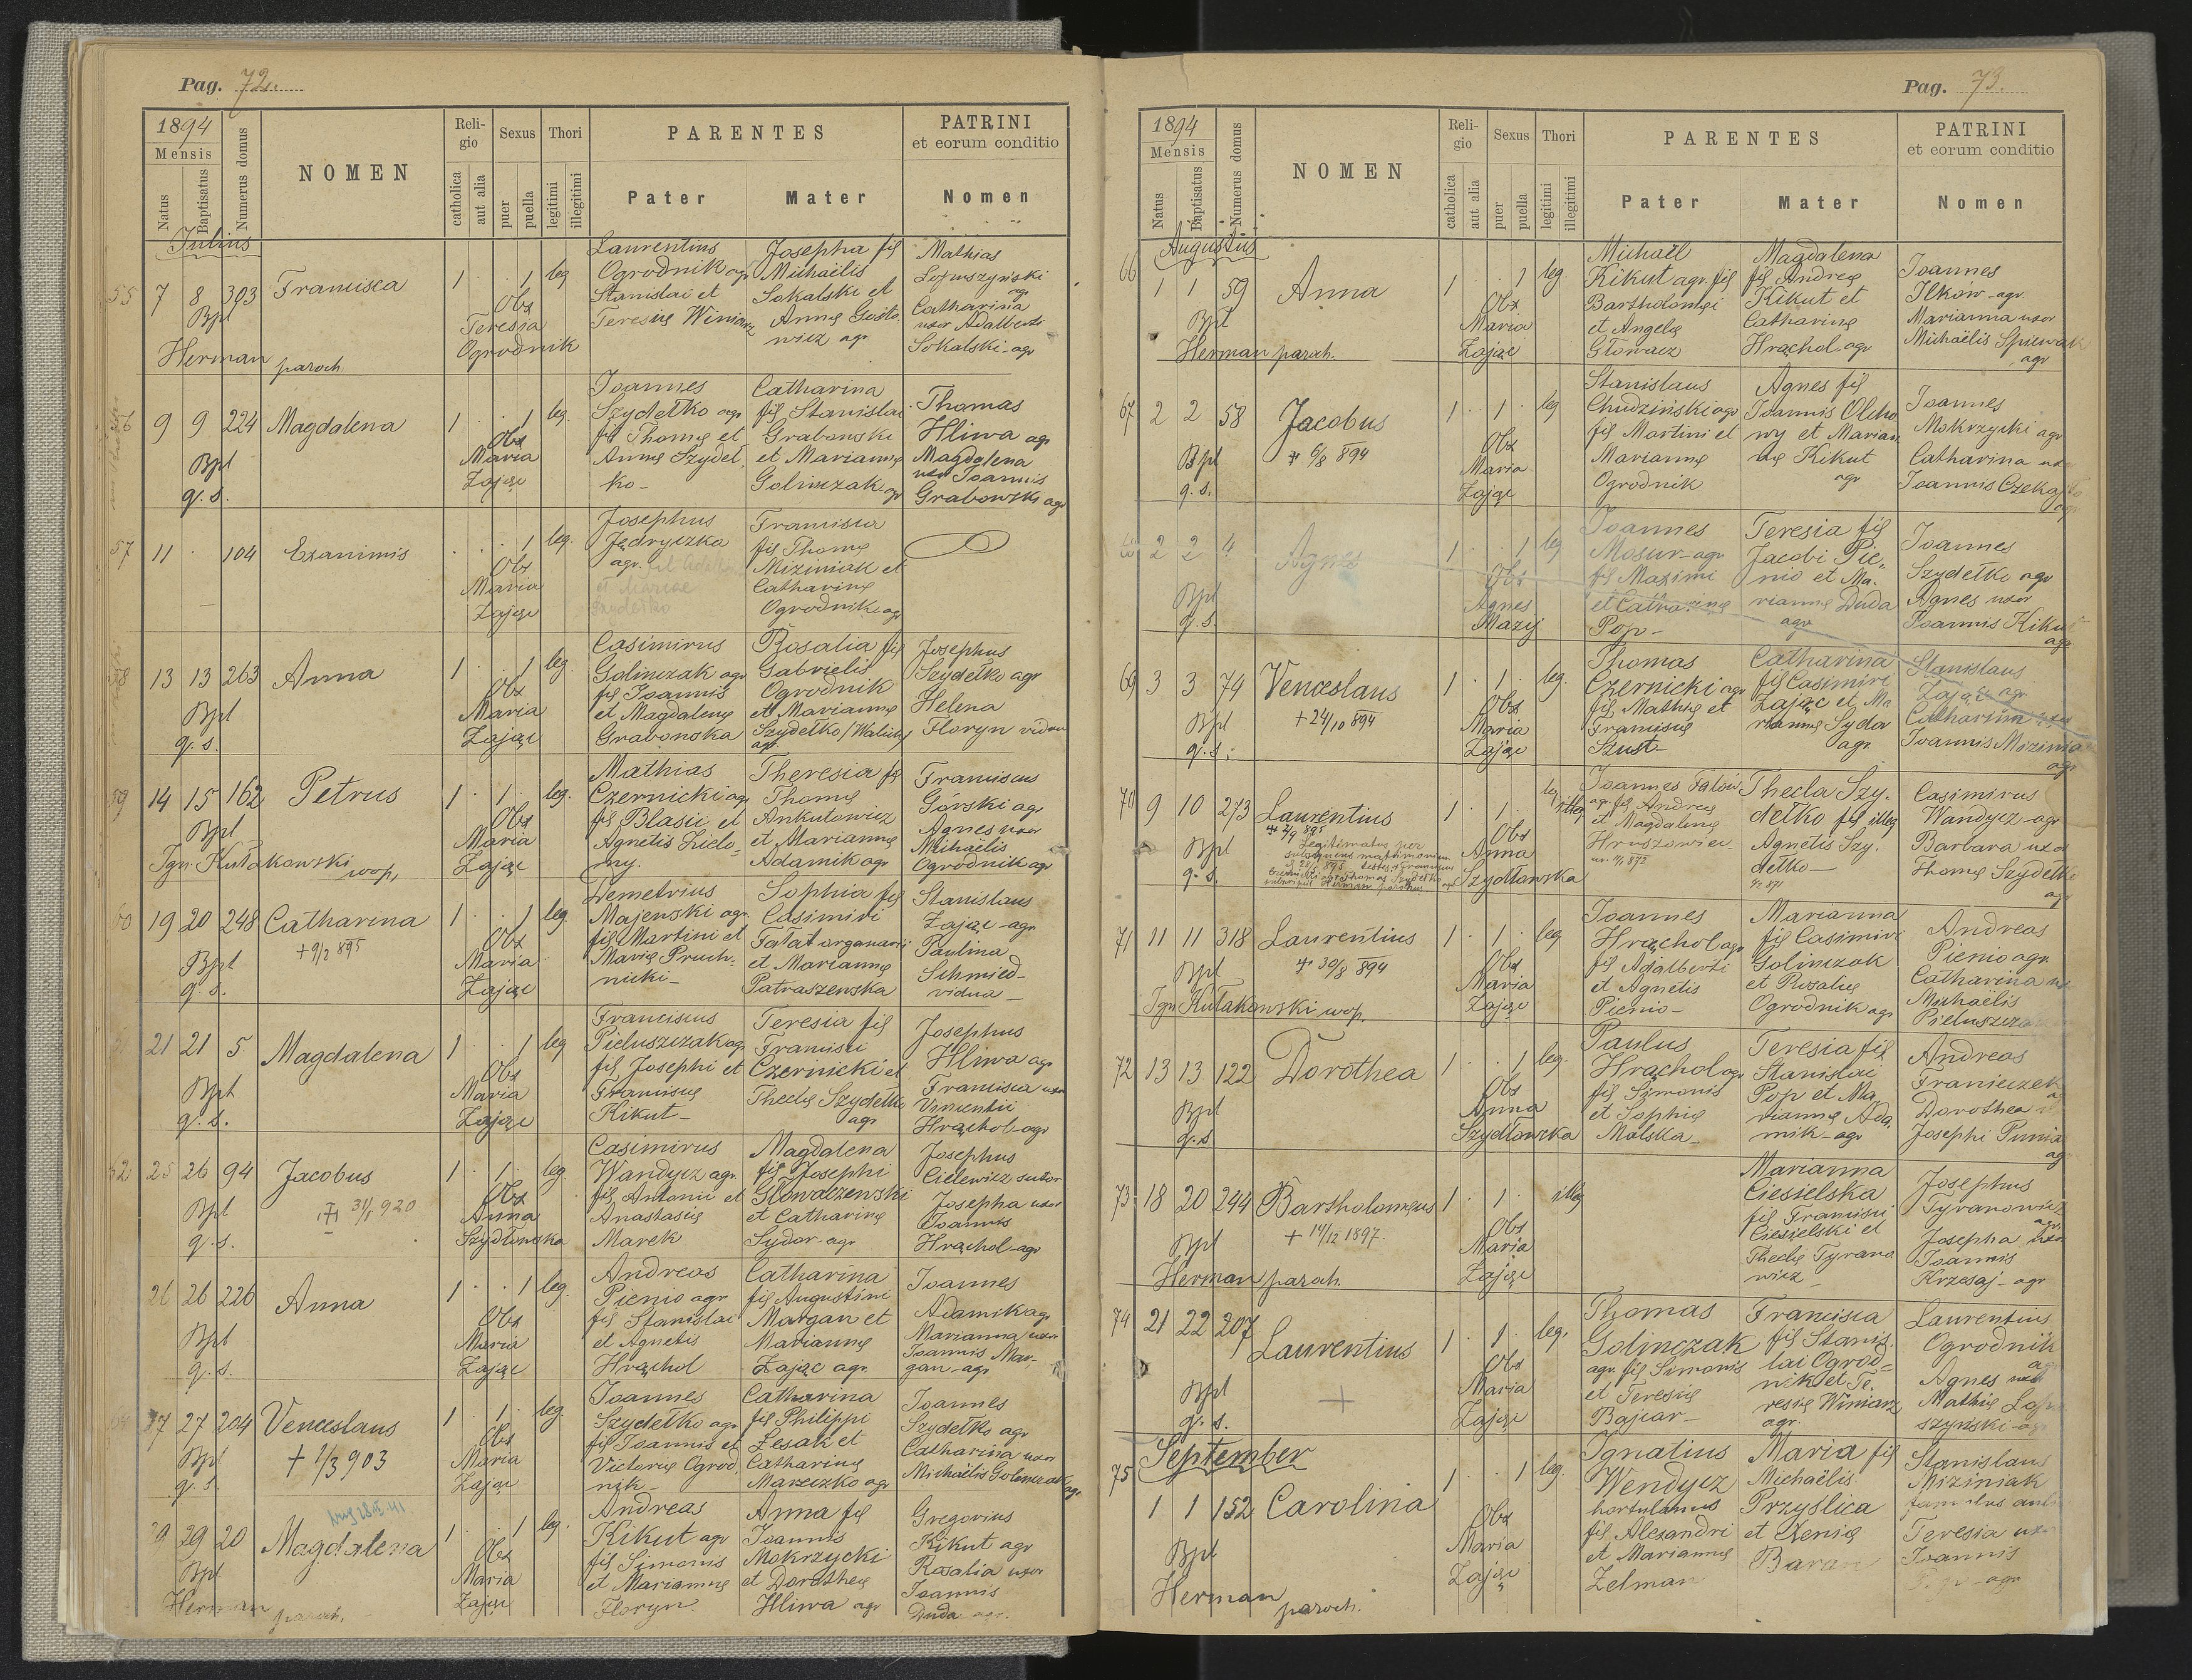 Pag. 72.
1894
Mensis
Natus
Baptisatus
Numerus domus
NOMEN
Religio
catholica
aut alia
Sexus
puer
puella
Thori
legitimi
illegitimi
PARENTES
Pater
Mater
PATRINI
et eorum conditio
Nomen
Julius
55 7 8 303 Francisca 1 . . 1 leg
Bpt
Herman paroch.
Obs
Teresia
Ogrodnik
Laurentius
Ogrodnik agr
Stanislai et
Teresię Winiarz
Josepha fil
Michaëlis
Sokalski et
Annę Gosto
wicz agr
Mathias
agr
Catharina
uxor Adalberti
Sokalski agr
56 9 9 224 Magdalena 1 . . 1 leg
Bpt
q. s.
Obs
Maria
Zając
Joannes
Szydełko agr
fil Thomę et
Annę Szydeł
ko –
Catharina
fil Stanislai
Grabowski
et Mariannę
Golinczak agr
Thomas
Hliwa agr
Magdalena
uxor Joannis
Grabowski agr
57 11 . 104 Exanimis . . . 1 leg.
Obs
Maria
Zając
Josephus
Jędryczka
agr.
et Mariae
Szydełko
Francisca
fil Thomę
Miziniak et
Catharinę
Ogrodnik agr
58 13 13 263 Anna 1 . . 1 leg.
Bpt
q. s.
Obs
Maria
Zając
Casimirus
Golinczak agr
fil Joannis
et Magdalenę
Grabowska
Rosalia fil
Gabrielis
Ogrodnik
et Mariannę
Szydełko /Walicky
agr.
Josephus
Szydełko agr
Helena
Floryn vidua
59 14 15 162 Petrus 1 . 1 . leg.
Bpt
Ign. Kułakowski wop,
Obs
Maria
Zając
Mathias
Czernicki agr
fil Blasii et
Agnetis Zielo-
ny.
Theresia fil
Thomę
Ankutowicz
et Mariannę
Adamik agr
Franciscus
Górski agr
Agnes uxor
Michaëlis
Ogrodnik agr
60 19 20 248 Catharina 1 . . 1 leg.
+ 9/2 895
Bpt
q. s.
Obs
Maria
Zając
Demetrius
Majewski agr.
fil Martini et
Marię Pruch-
nicki –
Sophia fil
Casimiri
Fatat organarii
et Mariannę
Patraszewska
Stanislaus
Zając – agr
Paulina
Schmied –
vidua –
21 21 5 Magdalena 1 . . 1 leg
Bpt
q. s.
Obs
Maria
Zając
Franciscus
Pieluszczak agr
fil Josephi et
Franciscę
Kikut –
Teresia fil
Francisci
Czernicki et
Theclę Szydełko
agr
Josephus
Hliwa agr
Francisca uxor
Vincentii
Hrąchol – agr
62 25 26 94 Jacobus 1 . 1 . leg.
Bpt
q. s.
Obs
Anna
Szydłowska
Casimirus
Wandycz agr.
fil Antonii et
Anastasię
Marek
Magdalena
fil Josephi
Głowaczewski
et Catharinę
Sydor – agr
Josephus
Cielewicz sutor
Josepha uxor
Joannis
Hrąchol – agr
26 26 226 Anna 1 . . 1 leg.
Bpt
q. s.
Obs
Maria
Zając
Andreas
Pienio agr
fil Stanislai
et Agnetis
Hrąchol
Catharina
fil Augustini
Margan et
Mariannę
Zając agr.
Joannes
Adamik agr
Marianna uxor
Joannis Mar-
gan – agr
27 27 204 Venceslaus 1 . 1 . leg.
+ 1/3 903
Bpt
q. s.
Obs
Maria
Zając
Joannes
Szydełko agr
fil Joannis et
Victorię Ogrod
nik –
Catharina
fil Philippi
Lesak et
Catharinę
Mareczko agr
Joannes
Szydełko agr
Catharina uxor
Michaëlis Golinczak
agr
29 29 20 Magdalena 1 . . 1 leg.
Bpt
Herman paroch.
Obs
Maria
Zając
Andreas
Kikut agr
fil Simonis
et Mariannę
Floryn.
Anna fil
Joannis
Mokrzycki
et Dorotheę
Hliwa agr
Gregorius
Kikut agr
Rosalia uxor
Joannis
Duda agr.
Pag. 73.
1894
Mensis
Natus
Baptisatus
Numerus domus
NOMEN
Religio
catholica
aut alia
Sexus
puer
puella
Thori
legitimi
illegitimi
PARENTES
Pater
Mater
PATRINI
et eorum conditio
Nomen
Augustus
66 1 1 59 Anna 1 . . 1 leg.
Bpt
Herman paroch.
Obs.
Maria
Zając
Michaël
Kikut agr. fil
Bartholomęi
et Angelę
Głowacz
Magdalena
fil Andreę
Kikut et
Catharinę
Hrąchol agr
Joannes
Ilków – agr.
Marianna uxor
Michaëlis Spiewak
agr
67 2 2 58 Jacobus 1 . 1 . leg
+ 6/8 894
Bpt
q. s.
Obs
Maria
Zając
Stanislaus
Chudziński agr
fil Martini et
Mariannę
Ogrodnik
Agnes fil
Joannis Olcho
wy et Marian
nę Kikut
agr
Joannes
Mokrzycki agr
Catharina uxor
Joannis Czekaj
68 2 2 4 Agnes 1 . . 1 leg
Bpt
q. s.
Obs
Agnes
Mazy
Joannes
Mosur – agr
fil Maximi
et Catharinę
Pop –
Teresia fil
Jacobi Pie-
nio et Ma-
riannę Duda
agr
Joannes
Szydełko agr
Agnes uxor
Joannis Kikut
agr
69 3 3 74 Venceslaus 1 . 1 . leg.
+ 24/10 894
Bpt
q. s.
Obs
Maria
Zając
Thomas
Czernicki agr
fil Mathię et
Franciscę
Szust –
Catharina
fil Casimiri
Zając et Ma
riannę Sydor
agr
Stanislaus
Zając agr
Catharina uxor
Joannis Mizinia
agr
70 9 10 273 Laurentius 1 . 1 . illeg
Legitimatus per
subsequens matrimonium
Bpt
q. s.
Obs
Anna
Szydłowska
Joannes Fatów
agr fil Andreę
et Magdalenę
Hruszowiec
Thecla Szy-
dełko fil illeg
Agnetis Szy-
dełko –
Casimirus
Wandycz – agr
Barbara uxor
Thomę Szydełko
agr
71 11 11 318 Laurentius 1 . 1 . leg
+ 30/8 894
Bpt
Ign Kułakowski wop.
Obs
Maria
Zając
Joannes
Hrąchol agr
fil Adalberti
et Agnetis
Pienio –
Marianna
fil Casimiri
Golinczak
et Rosalię
Ogrodnik agr
Andreas
Pienio agr.
Catharina
Michaëlis
Pieluszcza
72 13 13 122 Dorothea 1 . . 1 leg.
Bpt
q. s
Obs
Anna
Szydłowska
Paulus
Hrąchol agr
fil Simonis
et Sophię
Malska –
Teresia fil
Stanislai
Pop et Ma
riannę Ada
mik – agr
Andreas
Franiczek
Dorothea
Josephi Punia
ag
73 18 20 244 Bartholomęus 1 . 1 . illeg
+ 14/12 1897.
Bpt
Herman paroch.
Obs
Maria
Zając
Marianna
Ciesielska
fil Francisci
Ciesielski et
Theclę Tyrano
wicz –
Josephus
Tyranowicz
agr.
Josepha uxor
Joannis
Krzesaj – agr
74 21 22 207 Laurentius 1 . 1 . leg.
+
Bpt
q. s.
Obs
Maria
Zając
Thomas
Golinczak
agr. fil Simonis
et Teresię
Bajcar –
Francisca
fil Stanis-
lai Ogrod-
nik et Te-
resię Winiarz
agr.
Laurentius
Ogrodnik
Agnes uxor
Mathię
szyński – agr
September
75 1 1 152 Carolina 1 . . 1 leg.
Bpt
Herman
paroch.
Obs
Maria
Zając
Ignatius
Wendycz
hortulanus
fil. Alexandri
et Mariannę
Zelman
Maria fil
Michaëlis
Przyslica
et Xenię
Baran
Stanislaus
Miziniak
famulus
Teresia uxor
Joannis
agr